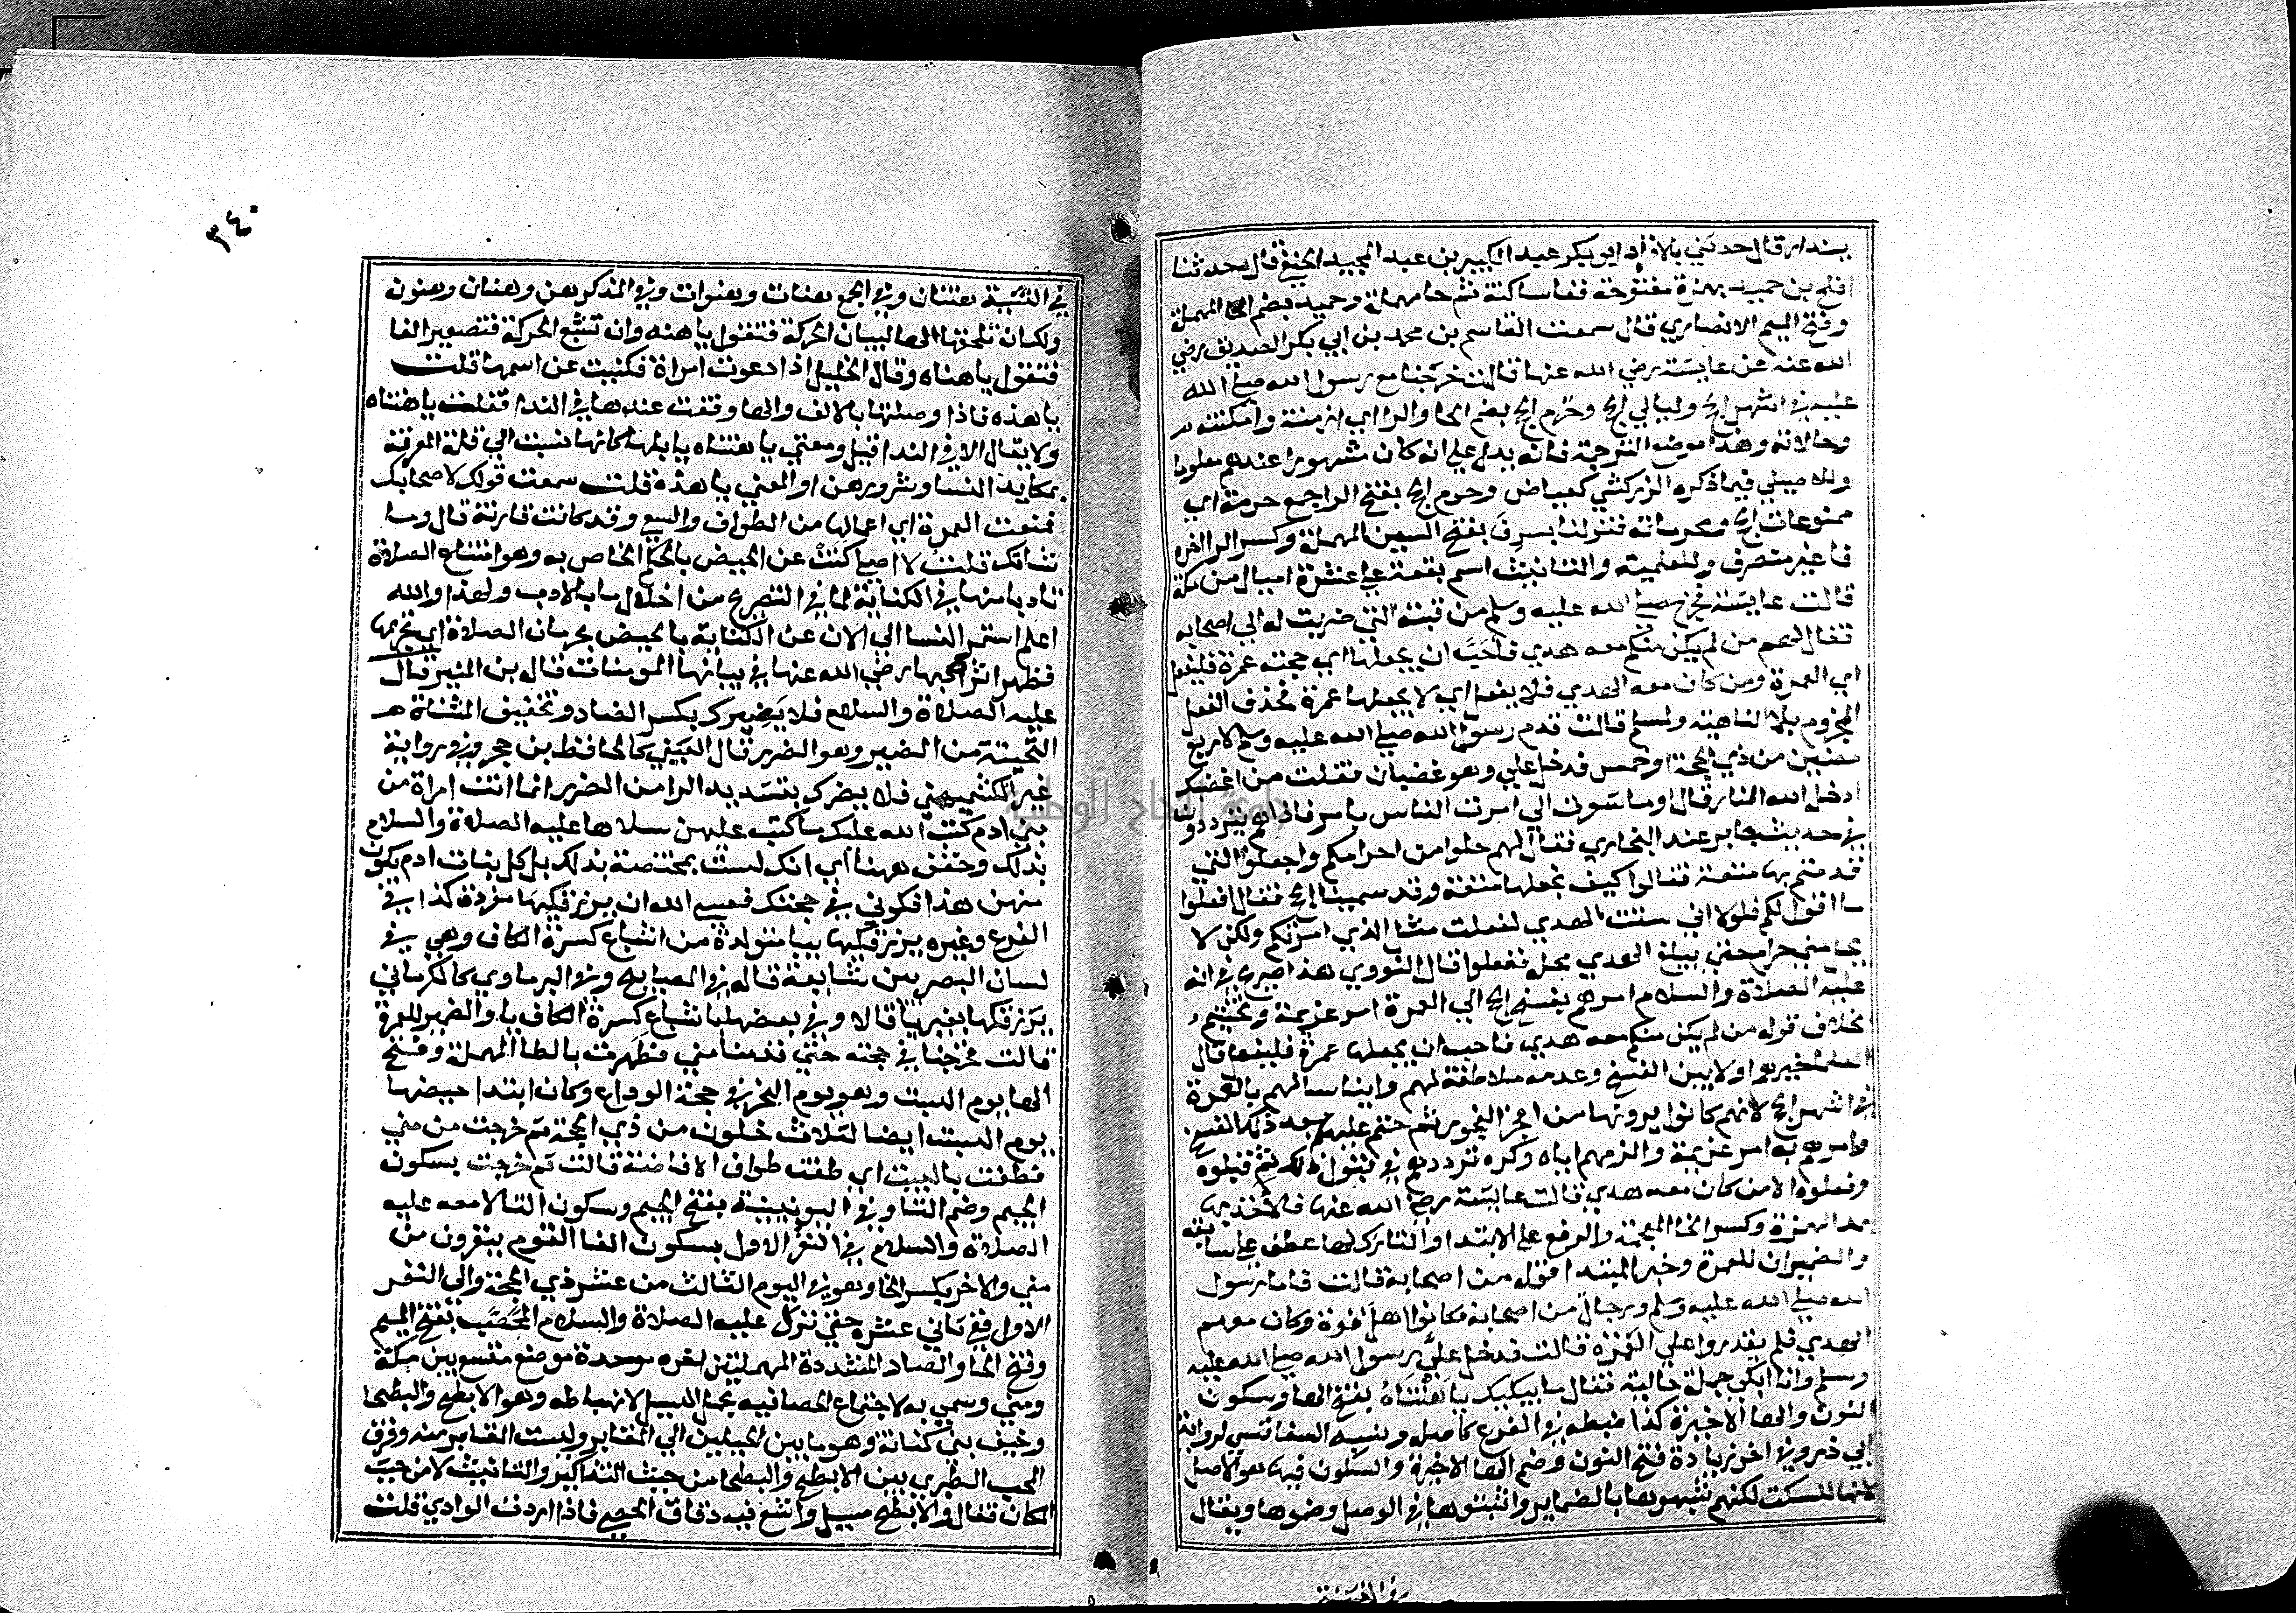 بندار قال حدثني بالافراد ابو بكر عبد الكبير بن عبد المجيد الحنفي قال حدثنا
افلح بن حميد بهمزة مفتوحة ففا ساكنة ثم حا مهملة وحميد بضم الحا المهملة
وفتح الميم الانصاري قال سمعت القاسم بن محمد بن ابي بكر الصديق رضي
الله عنه عن عايشة رضي الله عنها قالت خرجنا مع رسول الله صلي الله
عليه في اشهر الحج وليالي الحج وحرم الحج بضم الحا والرا اي ازمنته وامكنته
وحالاته وهذا موضع الترجمة فانه يدل علي انه كان مشهورا عندهم معلوما
وللاصيلي فيما ذكره الزركشي كعياض وحرم الحج بفتح الرا جمع حرمة اي
ممنوعات الحج ومحرماته فنزلنا بسرف بفتح السين المهملة وكسر الرا اخره
فا غير متصرف وللعلمية والتانيث اسم بقعة علي عشرة اميال من مكة
قالت عايشة فخرج صلي الله عليه وسلم من قبته التي ضربت له الي اصحابه
فقال لهم من لم يكن منكم معه هدي فاحب ان يجعلها اي حجته عمرة فليفعل
اي العمرة ومن كان معه الهدي فلا يفعل اي لا يجعلها عمرة فحذف الفعل
المجزوم بلا الناهية ولمسلم قالت قدم رسول الله صلي الله عليه وسلم لاربع
مضين من ذي الحجة او خمس فدخل علي وهو غضبان فقلت من اغضبك
ادخله الله النار قال اوما شعرت اني امرت الناس بامر فاذا هم يترددون
في حديث جابر عند البخاري فقال لهم حلوا من احرامكم واجعلوا التي
قدمتم بها متعة فقالوا كيف نجعلها متعة وقد سمينا الحج فقال افعلوا
ما اقول لكم فلولا اني سقت الهدي لفعلت مثل الذي امرتكم ولكن لا
يحل مني حرام حتي يبلغ الهدي محله ففعلوا قال النووي هذا صريح في انه
عليه الصلاة والسلام امرهم بفسخ الحج الي العمرة امر عزيمة وتحتيم
بخلاف قوله من لم يكن منكم معه هدي فاحب ان يجعلها عمرة فليفعل قال
العلما خيرهم اولا بين الفسخ وعدمه ملاطفة لهم وايناسا لهم بالعمرة
في اشهر الحج لانهم كانوا يرونها من افجر الفجور ثم حتم عليهم بعد ذلك الفسخ
وامرهم به امر عزيمة والزمهم اياه وكره ترددهم في قبول ذلك ثم قبلوه
وفعلوه الا من كان معه هدي قالت عايشة رضي الله عنها فالاخذ بها
بمد الهمزة وكسر الخا المعجمة والرفع علي الابتدا والتارك لها عطف علي سابقه
والضميران للعمرة وخبر المبتدا قوله من اصحابه قالت فاما رسول
الله صلي الله عليه وسلم ورجال من اصحابه فكانوا اهل قوة وكان معهم
الهدي فلم يقدروا علي العمرة قالت فدخل علي رسول الله صلي الله عليه
وسلم وانا ابكي جملة حالية فقال ما يبكيك يا هنتاه بفتح الها وسكون
النون والها الاخيرة كذا ضبطه في الفرع كاصله ونسبه السفاقسي لرواية
ابي ذر وفي اخر زيادة فتح النون وضم الها الاخيرة والسكون فيها هو الاصل
لانها للسكت لكنهم شبهوها بالضماير واثبتوها في الوصل وضموها ويقال
في التثنية
٣٤٠
في التثنية هنتان وفي الجمع هنات وهنوات وفي المذكر هن وهنان وهنون
ولك ان تلحقها الها لبيان الحركة فتقول يا هنه وان تشبع الحركة فتصير الفا
فتقول يا هناه وقال الخليل اذا دعوت امراة فكنيت عن اسمها قلت
يا هذه فاذا وصلتها بالالف والها وقفت عندها في الندا فقلت يا هنتاه
ولا يقال الا في الندا قيل ومعني يا هنتاه يا بلها كانها نسبت الي قلة المعرفة
بمكايد النسا وشرورهن او المعني يا هذه قلت سمعت قولك لاصحابك
فمنعت العمرة اي اعمالها من الطواف والسعي وقد كانت قارنة قال وما
شانك قلت لا اصلي كنت عن الحيض بالحكم الخاص به وهو امتناع الصلاة
تادبا منها في الكناية لما في التصريح من اخلال ما بالادب ولهذا والله
اعلم استمر النسا الي الان عن الكناية بالحيض بحرمان الصلاة اي تحريمها
فظهر اثر ادبها رضي الله عنها في بناتها المومنات قاله بن المنير قال
عليه الصلاة والسلام فلا يضيرك بكسر الضاد وتخفيف المثناة
التحتية من الضير وهو الضرر قال العيني كالحافظ بن حجر وفي رواية
غير الكشميهني فلا يضرك بتشديد الرا من الضرر انما انت امراة من
بني ادم كتب الله عليك ما كتب عليهن سلاها عليه الصلاة والسلام
بذلك وخفف همها اي انك لست بمختصة بذلك بل كل بنات ادم يكون
منهن هذا فكوني في حجتك فعسي الله ان يرزقكيها مفردة كذا في
الفرع وغيره يرزقكيها بيا متولدة من اشباع كسرة الكاف وهي في
لسان البصريين شايعة قاله في المصابيح وفي البرماوي كالكرماني
يرزقكها بغير يا قالا وفي بعضها باشباع كسرة الكاف يا والضمير للعمرة
قالت فخرجنا في حجته حتي قدمنا مني فطهرت بالطا المهملة وفتح
الها يوم السبت وهو يوم النحر في حجة الوداع وكان ابتدا حيضها
يوم السبت ايضا لثلاث خلون من ذي الحجة ثم خرجت من مني
فطفت بالبيت اي طفت طواف الافاضة قالت ثم خرجت بسكون
الجيم وضم التا وفي اليونينية بفتح الجيم وسكون التا لا معه عليه
الصلاة والسلام في النفر الاول بسكون الفا القوم ينفرون من
مني والاخر بكسر الخا وهو في اليوم الثالث من عشر ذي الحجة والي النفر
الاول في ثاني عشره حتي نزل عليه الصلاة والسلام المحصب بفتح الميم
وفتح الحا والصاد المشددة المهملتين اخره موحدة موضع متسع بين مكة
ومني وسمي به لاجتماع الحصا فيه بحمل السيل لانهباطه وهو الابطح والبطحا
وخيف بني كنانة وهو ما بين الجبلين الي المقابر وليست المقابر منه وفرق
المحب الطبري بين الابطح والبطحا من حيث التذكير والتانيث لا من حيث
المكان فقال والابطح مسيل واسع فيه دقاق الحصي فاذا اردت الوادي قلت
جامعة النجاح الوطنية